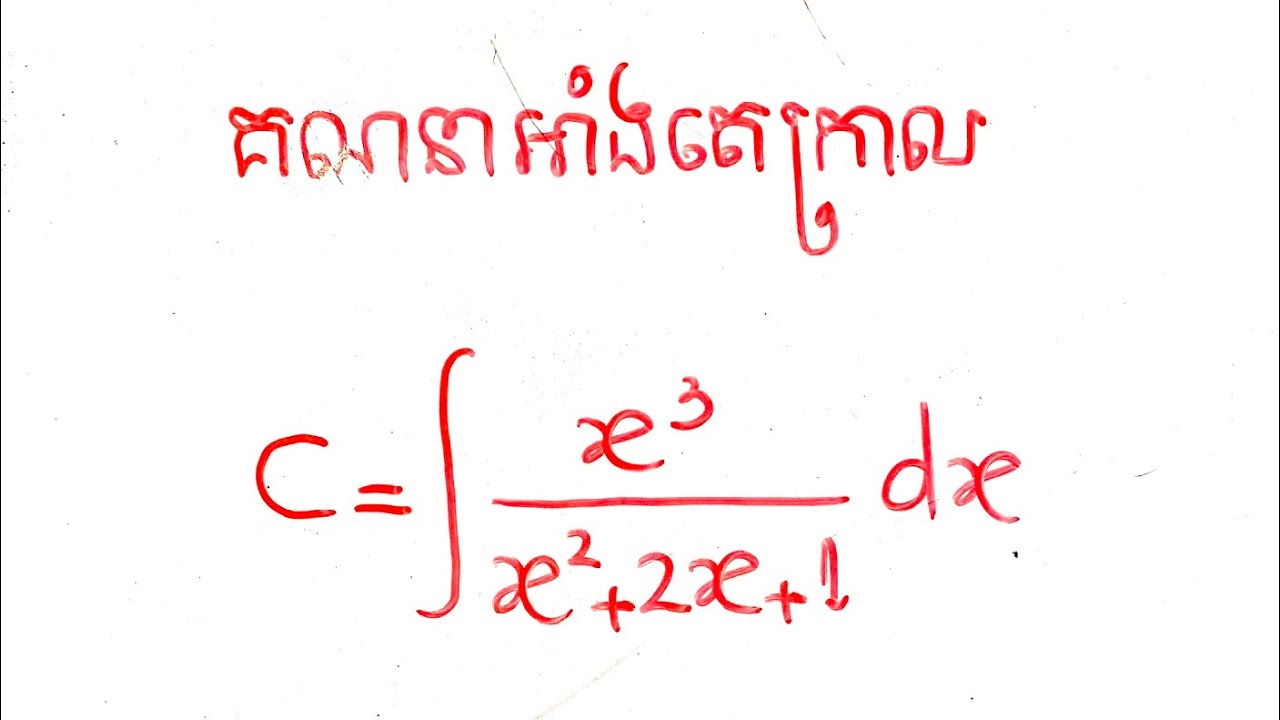 គណនាអាំងតេក្រាល
C = ∫ x³ / (x² + 2x + 1) dx